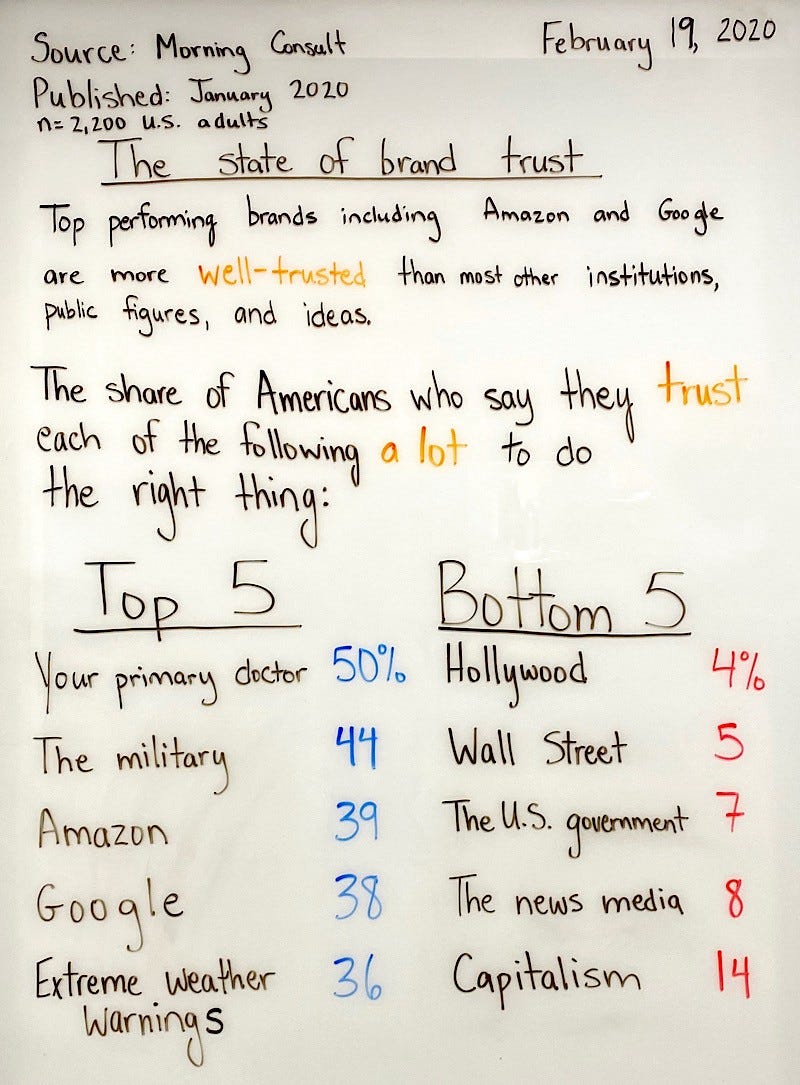 Source: Morning Consult
February 19, 2020
Published: January 2020
n= 2,200 U.S. adults
The state of brand trust
Top performing brands including Amazon and Google
are more well-trusted than most other institutions,
public figures, and ideas.
The share of Americans who say they trust
each of the following a lot to do
the right thing:
Top 5
Your primary doctor 50%
The military 44
Amazon 39
Google 38
Extreme weather 36
Warnings
Bottom 5
Hollywood 4%
Wall Street 5
The U.S. government 7
The news media 8
Capitalism 14